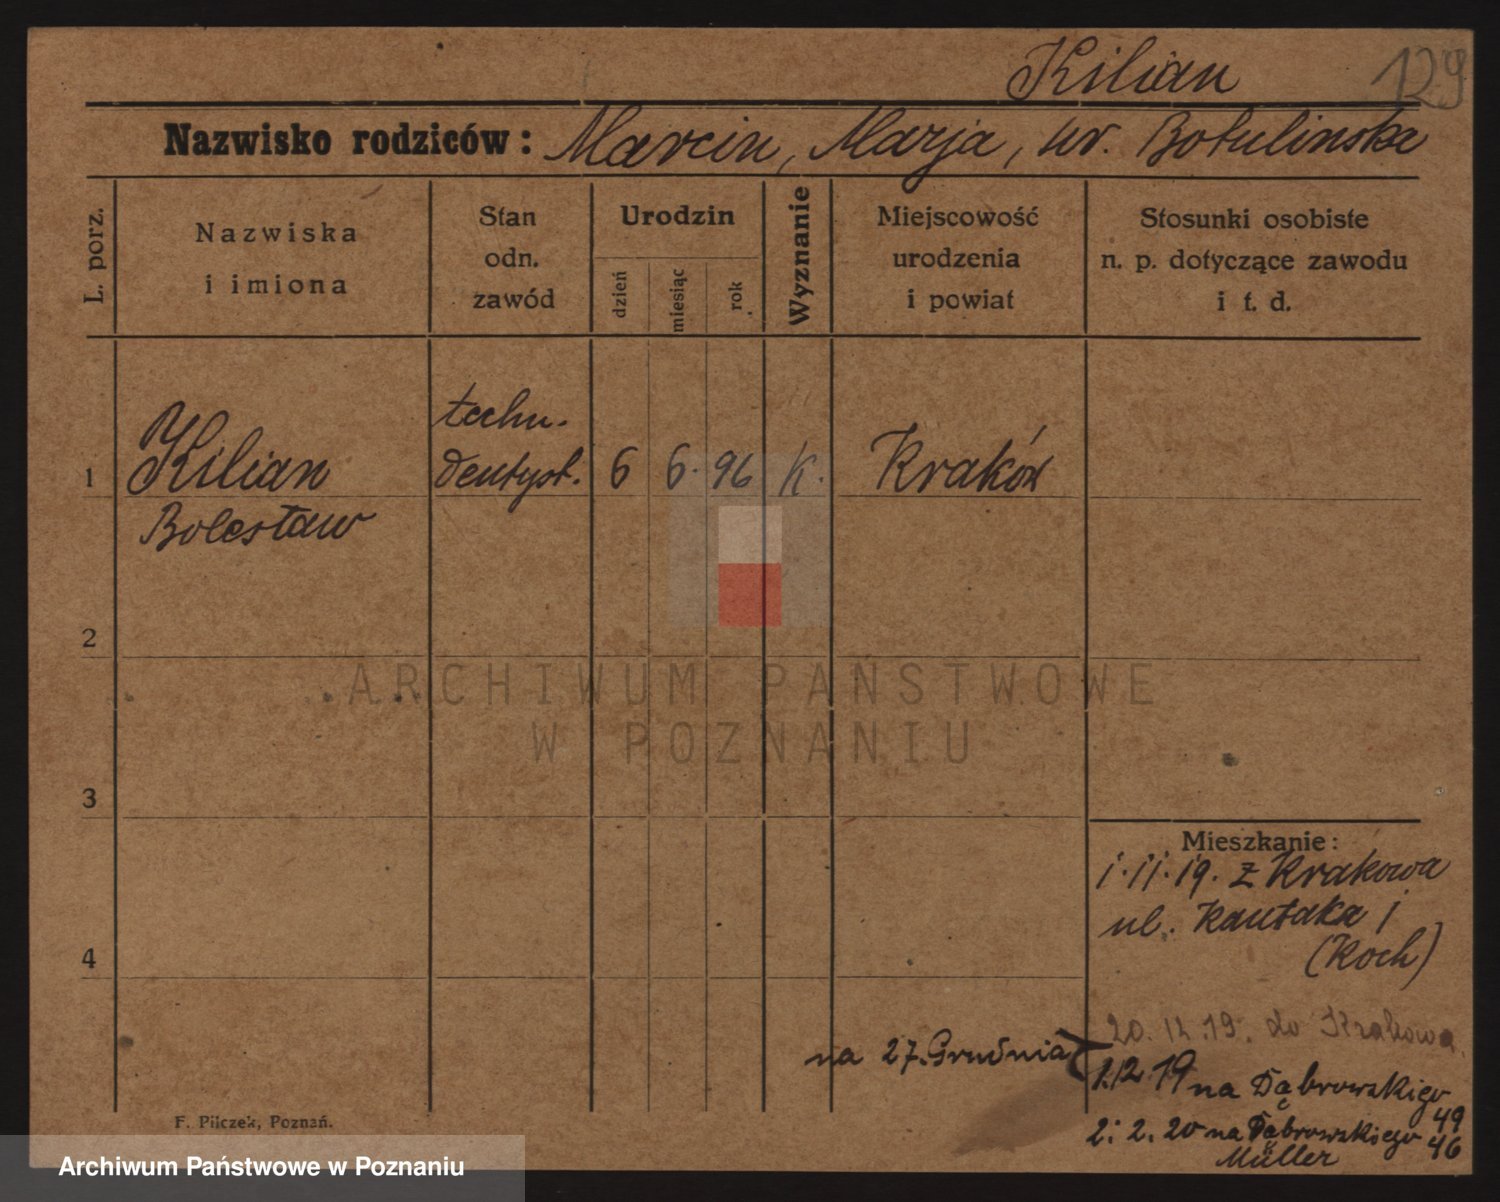 Kilian 129
Nazwisko rodziców: Marcin, Marja, ur. Botulinska
L. porz.
Nazwiska
i imiona
Stan
odn.
zawód
Urodzin
dzień
miesiąc
rok
Wyznanie
Miejscowość
urodzenia
i powiat
Stosunki osobiste
n. p. dotyczące zawodu
i t. d.
1
Kilian
Bolesław
techn.
dentyst.
6 6. 96 K.
Kraków
2
ARCHIWUM PAŃSTWOWE
W POZNANIU
3
4
Mieszkanie:
1.11.19. z Krakowa
ul. Kantaka 1
(Koch)
20.12.19. do Krakowa.
na 27. Grudnia
1.12.19 na Dąbrowskiego
49
2. 2. 20 na Dąbrowskiego 46
Müller
F. Pilczek, Poznań.
Archiwum Państwowe w Poznaniu